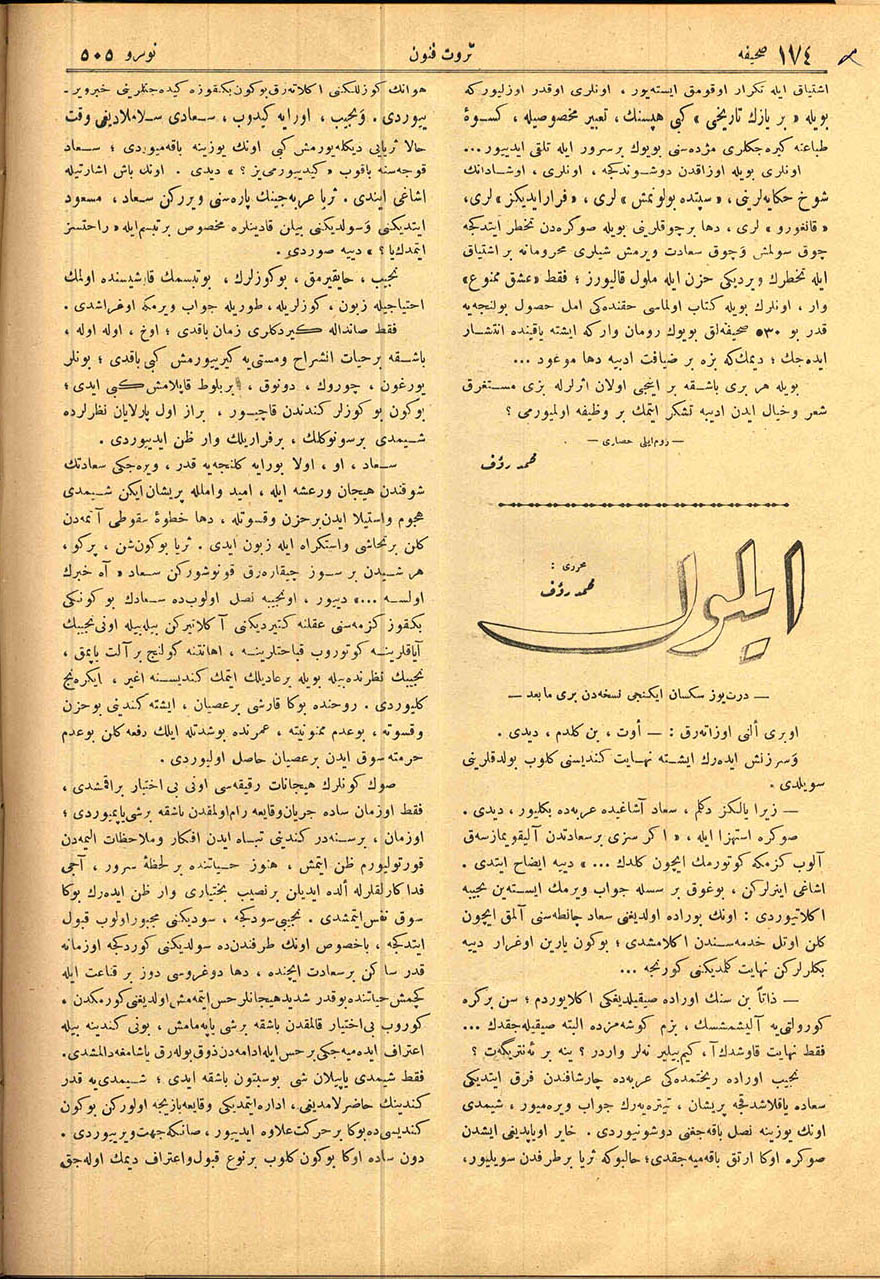 ١٧٤ صحیفه
ثروت فنون
نومرو ٥٠٥
اشتیاق ایله تکرار اوقومق ایسته‌یور ، اونلری اوقدر اوزلیورکه
بویله « بر یازك تاریخی » کبی هپسنك ، تعبیر مخصوصیله ، کسوهٔ
طباعته کیره‌جکلری مژده‌سنی بویوك برسرور ایله تلقی ایدییور...
اونلری بویله اوزاقدن دوشوندکجه ، اونلری ، اوشادانك
شوخ حکایه‌لرینی ، « سپتده بولونمش » لری ، « فرارایدیکز » لری،
« قانغورو » لری ، دها برچوقلرینی بویله صوکره‌دن تخطر ایتدکجه
چوق سولمش وچوق سعادت ویرمش شیلری محرومانه بر اشتیاق
ایله تخطرك ویردیکی حزن ایله ملول قالیورز ؛ فقط « عشق ممنوع »
وار ، اونلرك بویله کتاب اولماسی حقنده‌کی امل حصول بولنجه‌یه
قدر بو ٥٣٠ صحیفه‌لق بویوك رومان وارکه ایشته یاقینده انتشار
ایده‌جك ؛ دیمك‌که بزه بر ضیافت ادبیه دها موعود ...
بویله هر بری باشقه بر اینجی اولان اثرلرله بزی مستغرق
شعر وخیال ایدن ادیبه تشکر ایتمك بر وظیفه اولمیورمی ؟
— روم‌ایلی حصاری —
محمد رؤف
ایلول
محرری :
محمد رؤف
— درت‌یوز سکسان ایکنجی نسخه‌دن بری مابعد —
اوبری ألنی اوزاته‌رق : — أوت ، بن کلدم ، دیدی .
وسرزنش ایده‌رك ایشته نهایت کندیسنی کلوب بولدقلرینی
سویلدی .
— زیرا یالکز دکلم ، سعاد آشاغیده عربه‌ده بکلیور ، دیدی .
صوکره استهزا ایله ، « اکر سزی برسعادتدن آلیقویمازسه‌ق
آلوب کزمکه کوتورمك ایچون کلدك ... » دییه ایضاح ایتدی .
اشاغی اینرلرکن ، بوغوق بر سسله جواب ویرمك ایسته‌ین نجیبه
اکلاتیوردی : اونك بوراده اولدیغنی سعاد چانطه‌سنی آلمق ایچون
کلن اوتل خدمه‌سندن اکلامشدی ؛ بوکون یارین اوغرار دییه
بکلرلرکن نهایت کلمدیکنی کورنجه ...
— ذاتاً بن سنك اوراده صیقیلدیغکی اکلایوردم ؛ سن برکره
کورولتی‌یه آلیشمشسك ، بزم کوشه‌مزده البته صیقیله‌جقدك ...
فقط نهایت قاوشدك‌آ ، کیم‌بیلیر نه‌لر واردر ؟ ینه بر ئه‌نتریگه‌ت ؟
نجیب اوراده ریختمده‌کی عربه‌ده چارشافندن فرق ایتدیکی
سعاده یاقلاشدقجه پریشان ، تیتره‌یه‌رك جواب ویره‌میور ، شیمدی
اونك یوزینه نصل باقه‌جغنی دوشونیوردی . خایر اویاپدیغی ایشدن
صوکره اوکا ارتق باقه‌میه‌جقدی؛ حالبوکه ثریا برطرفدن سویلیور،
هوانك کوزللکنی اکلاته‌رق بوکون بکقوزه کیده‌جکلرینی خبرویر-
ییوردی . ونجیب ، اورایه کیدوب ، سعادی سلاملادیغی وقت
حالا ثریایی دیکله‌یورمش کبی اونك یوزینه باقه‌میوردی ؛ سعاد
قوجه‌سنه باقوب « کیدییورمی‌یز ؟ » دیدی . اونك باش اشارتیله
اشاغی ایندی . ثریا عربه‌جینك پاره‌سنی ویررکن سعاد ، مسعود
ایتدیکنی وسولدیکنی بیلن قادینلره مخصوص برتبسم‌ایله « راحتسز
ایتمدك‌یا ؟ » دییه صوردی .
نجیب ، حایقیرمق ، بوکوزلرك ، بوتبسمك قارشیسنده اولمك
احتیاجیله زبون ، کوزلریله ، طوریله جواب ویرمکه اوغراشدی .
فقط صانداله کیردکلری زمان باقدی ؛ اوخ ، اوله اوله ،
باشقه برحیات انشراح ومستی‌یه کیریورمش کبی باقدی ؛ بونلر
یورغون ، چوروك ، دونوق ، بربلوط قاپلامش کبی ایدی ؛
بوکون بوکوزلر کندندن قاچییور ، براز اول پارلایان نظرلرده
شیمدی برسونوکلك ، برفراریلك وار ظن ایدییوردی .
سعاد ، او ، اولا بورایه کلنجه‌یه قدر ، ویره‌جکی سعادتك
شوقندن هیجان ورعشه ایله ، امید واملله پریشان‌ایکن شیمدی
هجوم واستیلا ایدن برحزن وقسوتله ، دها خطوهٔ سقوطی آتمه‌دن
کلن برتحاشی واستکراه ایله زبون ایدی . ثریا بوکون‌شن ، پرکو ،
هر شیدن بر سوز چیقاره‌رق قونوشورکن سعاد « آه خبرك
اولسه ...» دییور ، اونجیبه نصل اولوب‌ده سعادك بوکونکی
بکقوز کزمه‌سنی عقلنه کتیردیکنی آکلاتیرکن بیله‌بیله اونی نجیبك
آیاقلرینه کوتوروب قباحتلرینه ، اهانتنه کولنج برآلت یاپمق ،
نجیبك نظرنده‌بیله بویله برعادیلك ایتمك کندیسنه اغیر ، ایکره‌نج
کلیوردی . روحنده بوکا قارشی برعصیان ، ایشته کندینی بوحزن
وقسوته ، بوعدم ممنونیته ، عمرنده بوشدتله ایلك دفعه کلن بوعدم
حرمته سوق ایدن برعصیان حاصل اولیوردی .
صوك کونلرك هیجانات رقیقه‌سی اونی بی اختیار براقمشدی ،
فقط اوزمان ساده جریان‌وقایعه رام‌اولمقدن باشقه برشی‌یاپمیوردی ؛
اوزمان ، برسنه‌در کندینی تباه ایدن افکار وملاحظات الیمه‌دن
قورتولیورم ظن ایتمش ، هنوز حیاتنده برلحظهٔ سرور ، آجی
فداکارلقلرله ألده ایدیلن برنصیب بختیاری وار ظن ایده‌رك بوکا
سوق نفس‌ایتمشدی . نجیبی سودکجه ، سودیکنی مجبوراولوب قبول
ایتدکجه ، باخصوص اونك طرفندن‌ده سولدیکنی کوردکجه اوزمانه
قدر ساکن برسعادت ایچنده ، دها دوغروسی دوز برقناعت ایله
کچمش حیاتنده بوقدر شدید هیجانلرحس ایتمه‌مش اولدیغنی‌کورمکدن ،
کوروب بی‌اختیار قالمقدن باشقه برشی یاپه‌مامش ، بونی کندینه بیله
اعتراف ایده‌میه‌جکی برحس‌ایله‌ادامه‌دن ذوق بوله‌رق یاشامغه‌دالمشدی.
فقط شیمدی یاپیلان شی بوسبتون باشقه ایدی ؛ شیمدی‌یه قدر
کندینك حاضرلامدیغی، اداره‌ایتمدیکی وقایعه بازیجه اولورکن بوکون
کندیسی‌ده‌بوکا برحرکت‌علاوه ایدییور ، صانکه‌جهت‌ویرییوردی .
دون ساده اوکا بوکون کلوب برنوع قبول‌واعتراف دیمك اوله‌جق